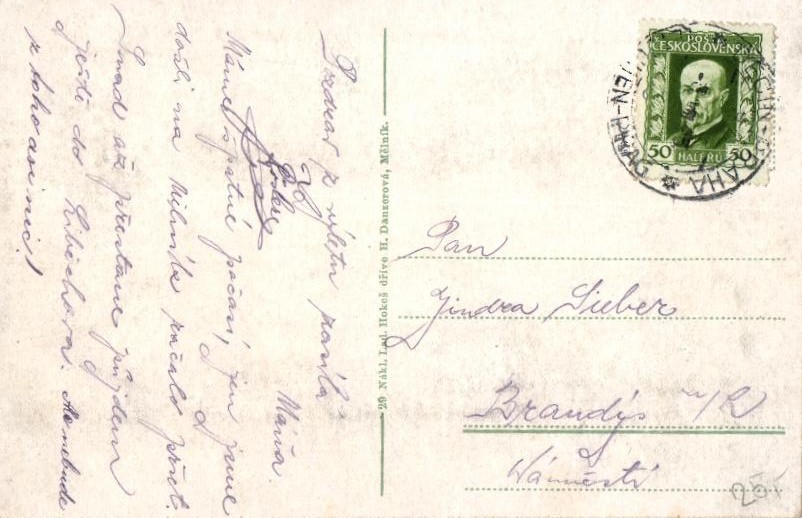 Pozdrav z výletu posílá
Máňa.
Máme špatné počasí, jen jsme
došli na Mělník začalo pršet.
Snad až přestane půjdem
ještě do Liběchova. Nebude
z toho asi nic!
29 Nákl. Lad. Hokeš dříve H. Danzerová, Mělník.
POŠTA
ČESKOSLOVENSKÁ
50 HALÉŘŮ 50
PRAHA
Pan
Jindra Sieber
Brandýs n/L
Náměstí
20